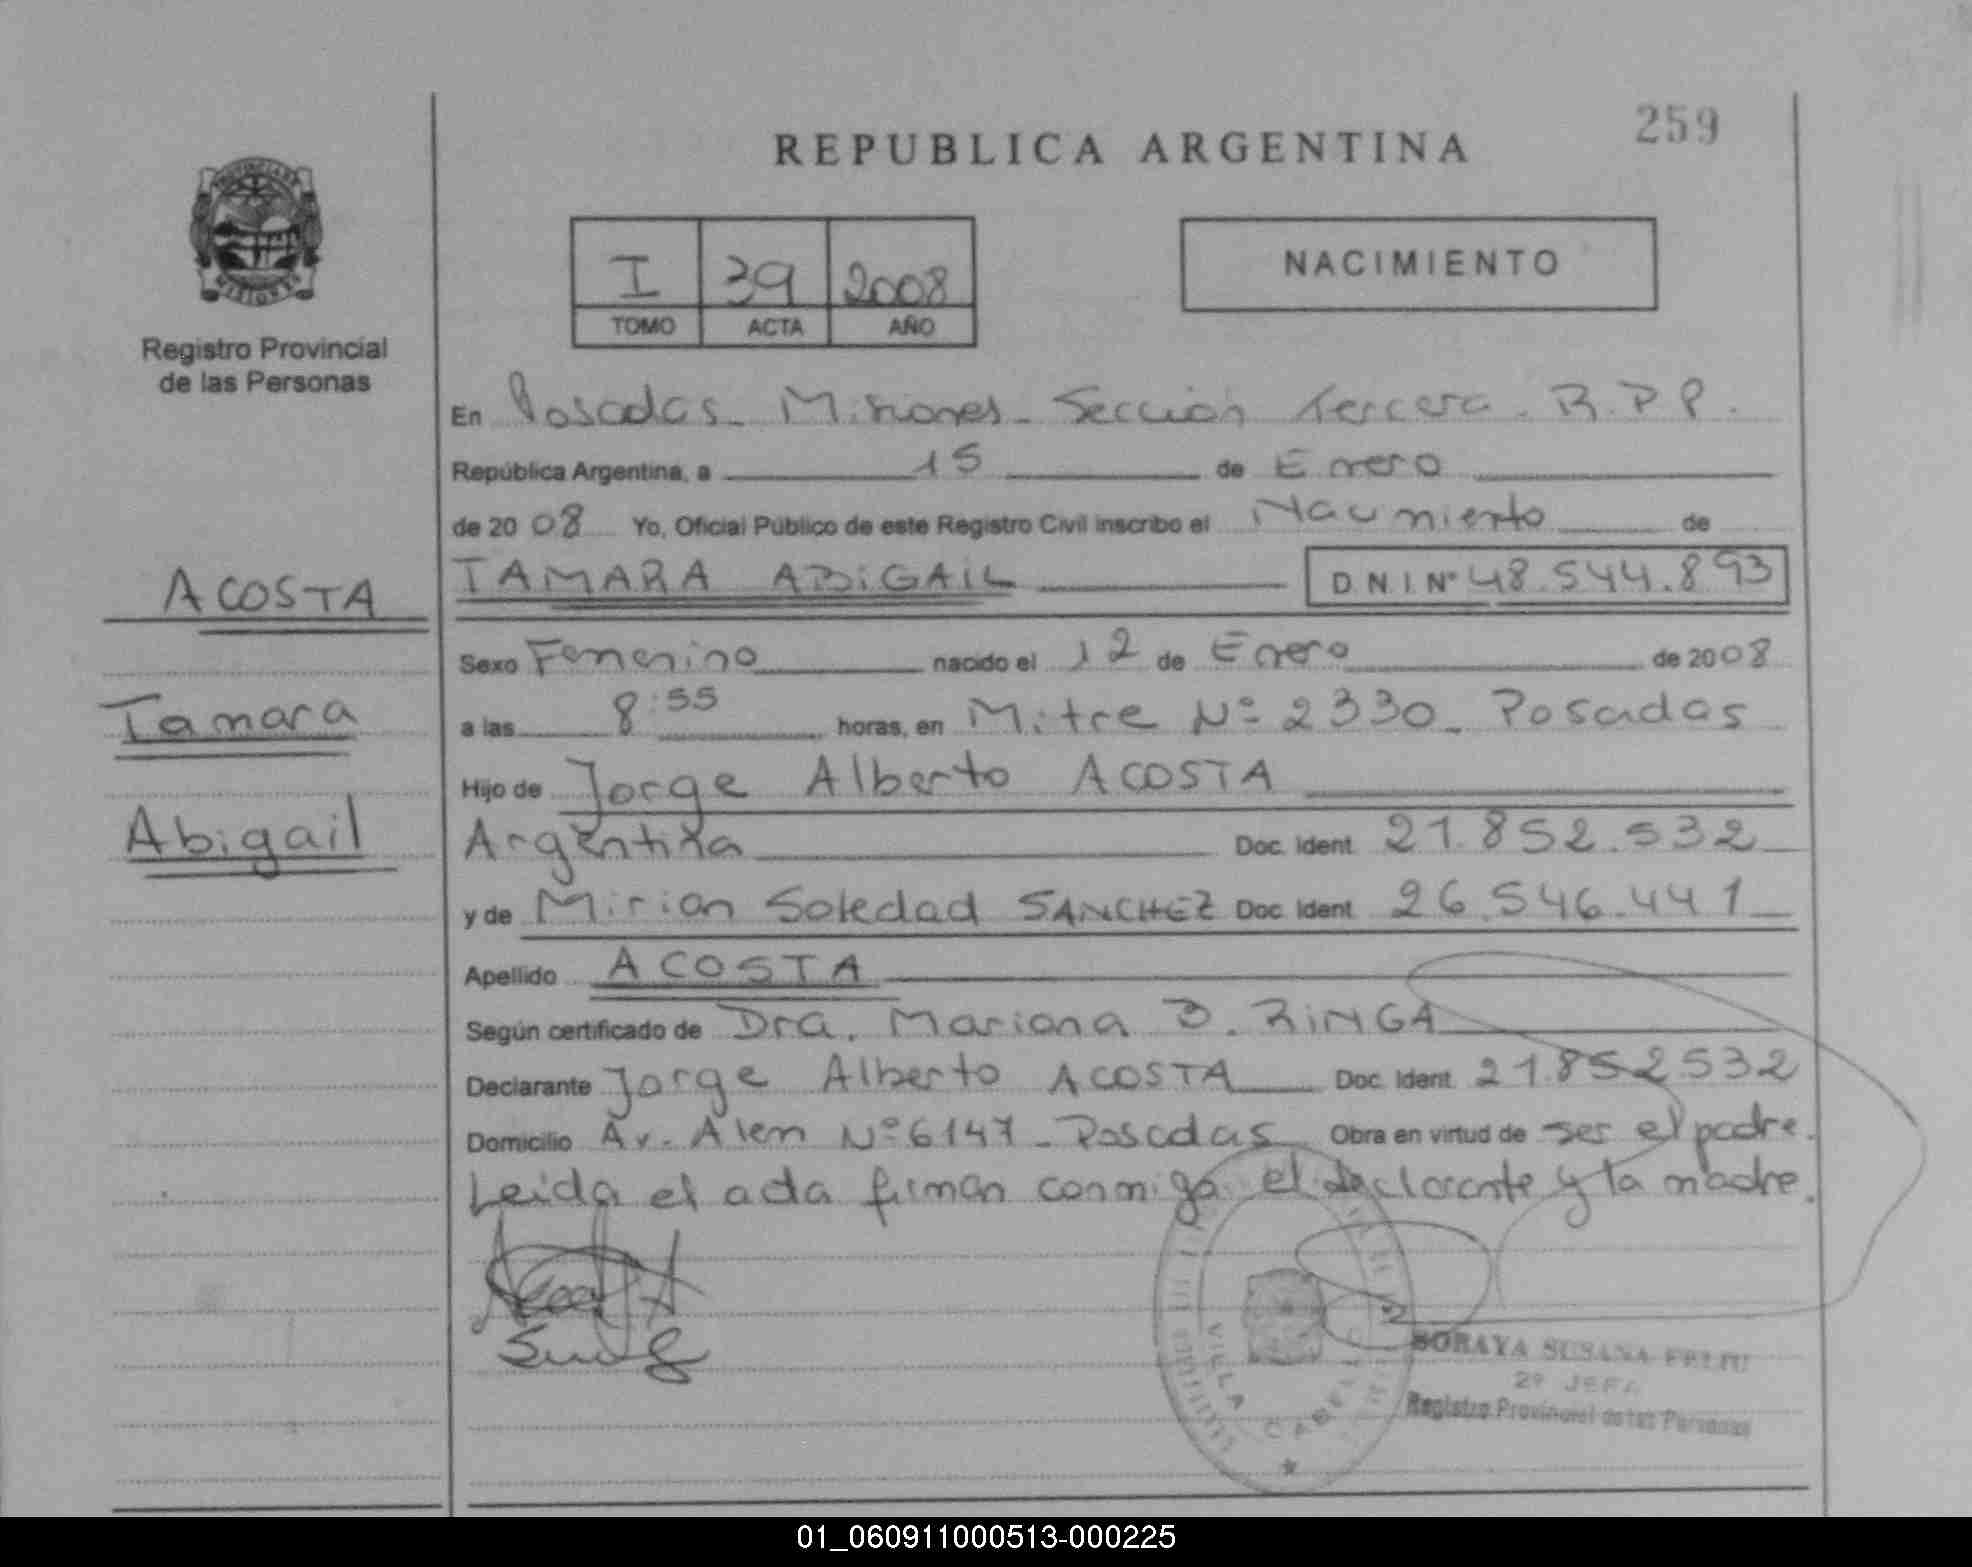 259
REPUBLICA ARGENTINA
MISIONES
Registro Provincial
de las Personas
I 39 2008
TOMO ACTA AÑO
NACIMIENTO
En Posadas - Misiones - Sección Tercera. R.P.P.
República Argentina, a 15 de Enero
de 2008 Yo, Oficial Público de este Registro Civil inscribo el Nacimiento de
ACOSTA
Tamara
Abigail
TAMARA ABIGAIL D.N.I. N° 48.544.893
Sexo Femenino nacido el 12 de Enero de 2008
a las 8:55 horas, en Mitre Nº 2330 - Posadas
Hijo de Jorge Alberto ACOSTA
Argentina Doc. Ident. 21.852.532
y de Mirian Soledad SANCHEZ Doc. Ident. 26.546.441
Apellido ACOSTA
Según certificado de Dra. Mariana B. RINGA
Declarante Jorge Alberto ACOSTA Doc. Ident. 21.852532
Domicilio Av. Alem Nº 6147 - Posadas Obra en virtud de ser el padre.
Leida el acta firman conmigo el declarante y la madre.
VILLA CABELLO
SORAYA SUSANA FELIU
2º JEFA
Registro Provincial de las Personas
01_060911000513-000225